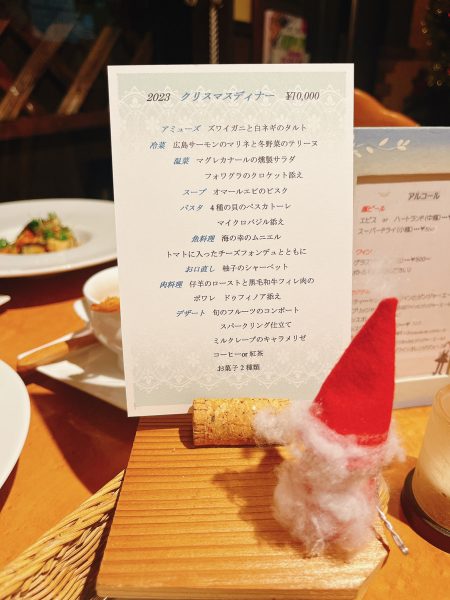 2023 クリスマスディナー ¥10,000
アミューズ ズワイガニと白ネギのタルト
冷菜 広島サーモンのマリネと冬野菜のテリーヌ
温菜 マグレカナールの燻製サラダ
フォワグラのクロケット添え
スープ オマールエビのビスク
パスタ 4種の貝のペスカトーレ
マイクロバジル添え
魚料理 海の幸のムニエル
トマトに入ったチーズフォンデュとともに
お口直し 柚子のシャーベット
肉料理 仔羊のローストと黒毛和牛フィレ肉の
ポワレ ドゥフィノア添え
デザート 旬のフルーツのコンポート
スパークリング仕立て
ミルクレープのキャラメリゼ
コーヒーor紅茶
お菓子2種類
アルコール
ビール
エビス or ハートランド
スーパードライ
ワイン
グラス